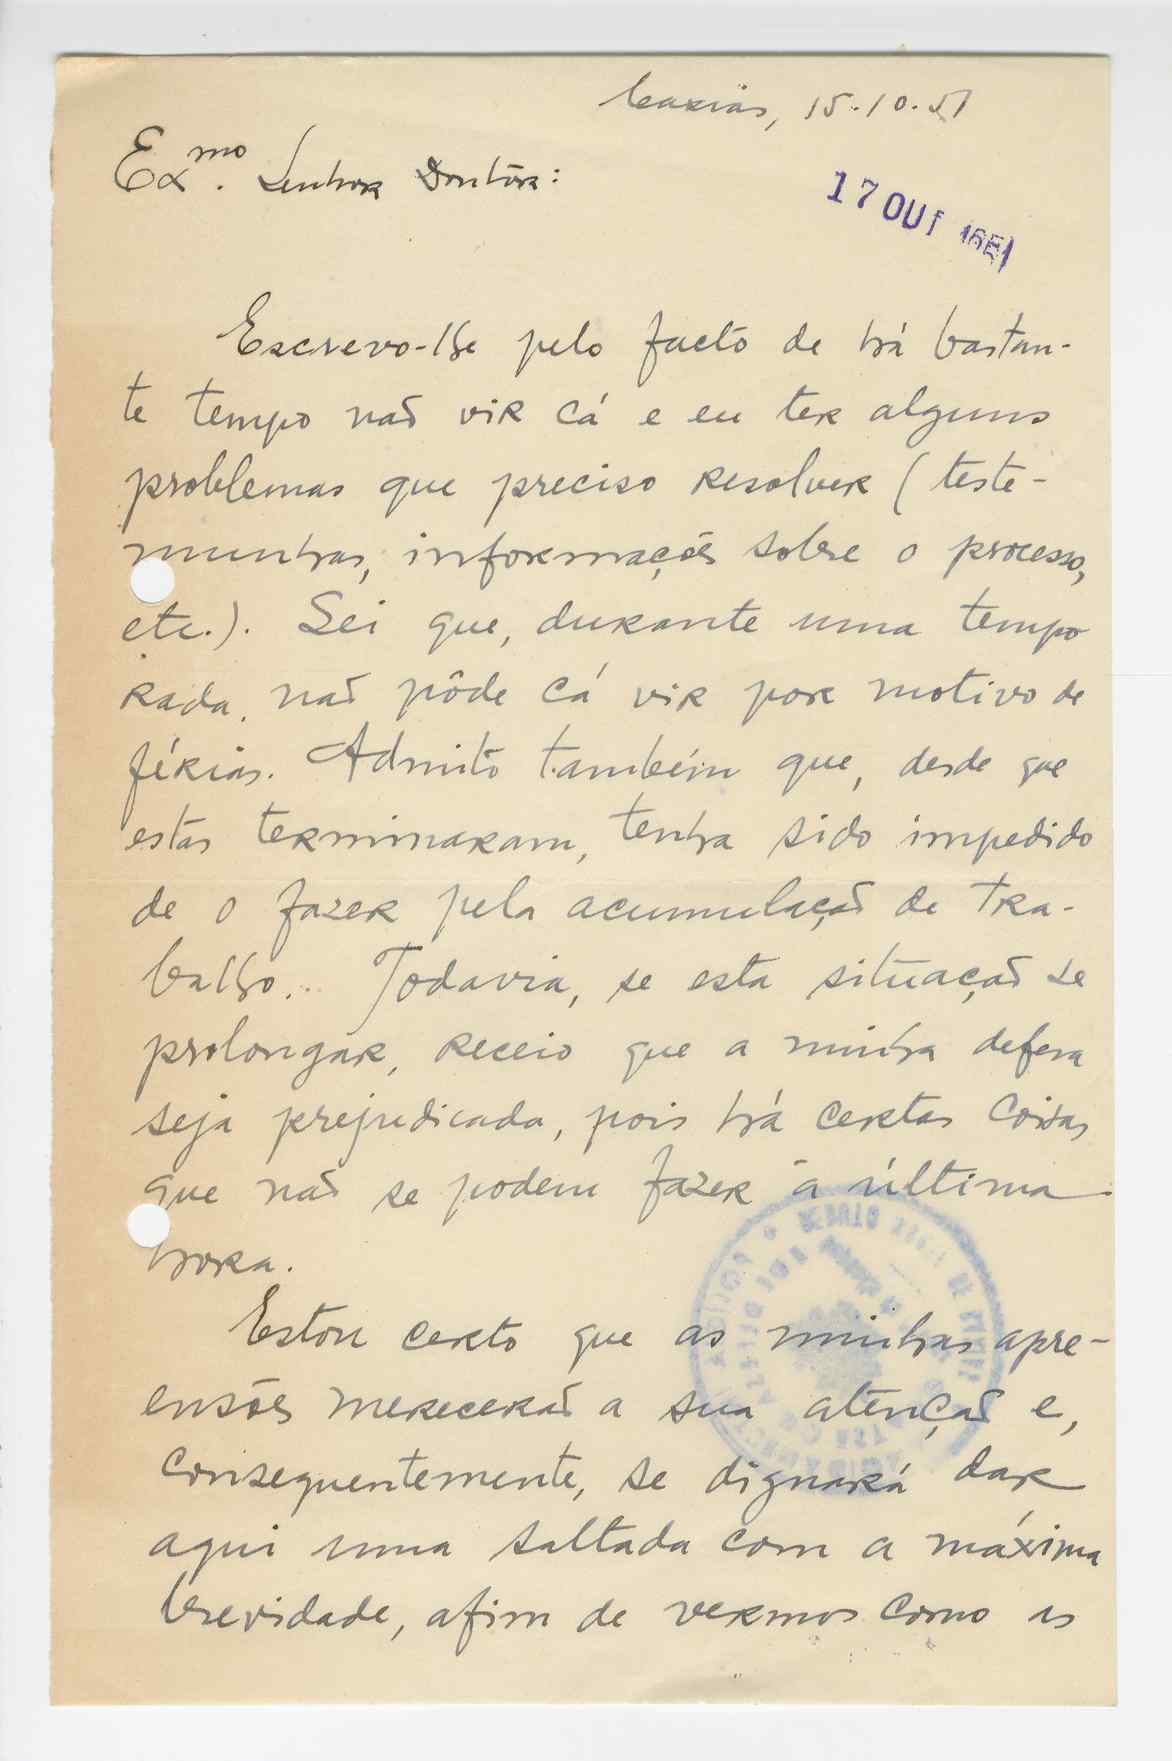 Caxias, 15.10.51
Exmo. Senhor Doutor:
17 OUT 1951
Escrevo-lhe pelo facto de há bastan-
te tempo não vir cá e eu ter alguns
problemas que preciso resolver (teste-
munhas, informações sobre o processo,
etc.). Sei que, durante uma tempo
rada, não pôde cá vir por motivo de
férias. Admito também que, desde que
estas terminaram, tenha sido impedido
de o fazer pela acumulação de tra-
balho.. Todavia, se esta situação se
prolongar, receio que a minha defesa
seja prejudicada, pois há certas coisas
que não se podem fazer à última
hora.
Estou certo que as minhas apre-
ensões merecerão a sua atenção e,
consequentemente, se dignará dar
aqui uma saltada com a máxima
brevidade, afim de vermos como as